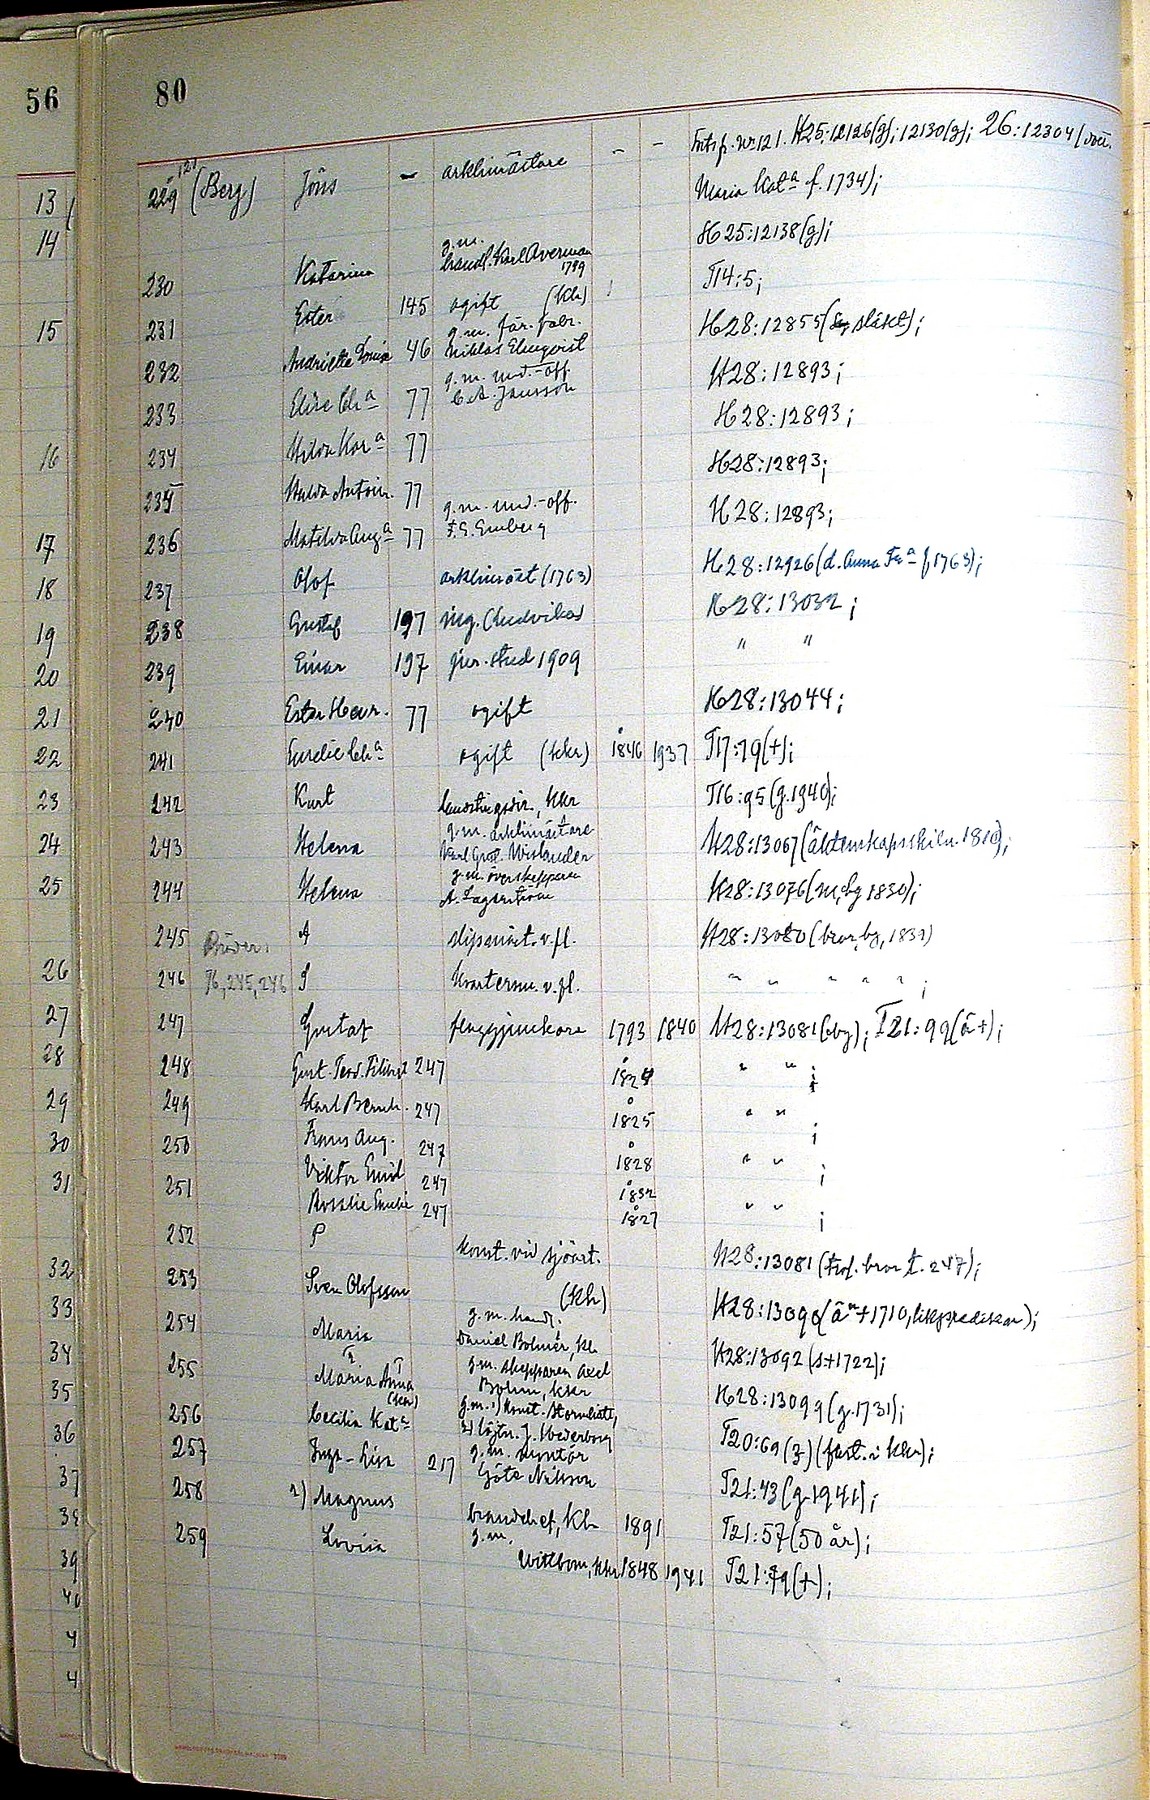 56
80
13
14
15
16
17
18
19
20
21
22
23
24
25
26
27
28
29
30
31
32
33
34
35
36
37
38
39
40
4
4
121
229 (Berg) Jöns - arklimästare - - Forts. fr. nr 121. H25:12126(g); 12130(g); 26:12304 (dott.
Maria Kat:a f. 1734);
g.m.
230 Katarina handl. Karl Averman 1799 H25:12138(g);
231 Ester 145 ogift (Kkr) T14:5;
g.m. fär. fabr.
232 Andriette Lovisa 46 Niklas Elmqvist H28:12855 (släkt);
g.m. und.-off.
233 Elise Ch:a 77 C.A. Jansson H28:12893;
234 Hilda Kar:a 77 H28:12893;
235 Hulda Antoin. 77 H28:12893;
g.m. und.-off.
236 Matilda Aug:a 77 F.E. Enberg H28:12893;
237 Olof arklimäst (1763) H28:12926 (d. Anna Fr:a f 1763);
238 Gustaf 197 ing. (Ludvika) H28:13032;
239 Einar 197 jur. stud 1909 " "
240 Ester Henr. 77 ogift H28:13044;
241 Emelie Ch:a ogift (kkr) 1846 1937 T17:79(+);
242 Kurt landstingsdir, kkr T16:95 (g.1940);
g.m. arklimästare
243 Helena Karl Gust. Wislander H28:13067 (äktenskapsskiln. 1810);
g.m. överskepparen
244 Helena A. Lagerström H28:13076 (m, bg 1830);
245 Bröder: A slipmäst. v. fl. H28:13080 (bror, bg, 1839)
246 76, 245, 246 J kvarterm. v. fl. " " " " " ;
247 Gustaf flaggjunkare 1793 1840 H28:13081 (bg); T21:99 (å +);
248 Gust. Ferd. Filibert 247 1824 " " ;
249 Karl Bernh. 247 1825 " " ;
250 Frans Aug. 247 1828 " " ;
251 Viktor Emil 247 1832 " " ;
Rosalie Emelie 247 1827 " " ;
252 P konst. vid sjöart. H28:13081 (trol. bror t. 247);
253 Sven Olofsson (Kh) H28:13090 (å + 1710, likpredikan);
g.m. handl.
254 Maria Daniel Bolmér, kh H28:13092 (s + 1722);
g.m. skepparen Axel
255 Maria Anna (kkr) Bohm, kkr H28:13099 (g.1731);
g.m. 1) konst. Stormhatt,
256 Cecilia Kat:a 2) löjtn. J. Wederborg T20:69 (3) (fast. i kkr);
g.m. montör
257 Inga-Lisa 217 Göte Nilsson T21:43 (g.1941);
258 2) Magnus brandchef, Kh 1891 T21:57 (50 år);
g.m.
259 Lovisa Wittbom, kkr 1848 1941 T21:79(+);